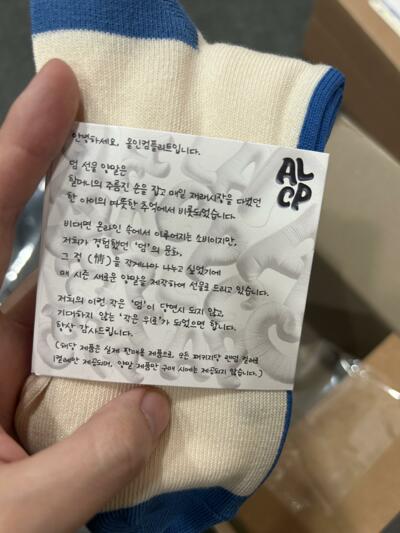 안녕하세요, 올인컴플리트입니다.
AL
CP
덤 선물 양말은
할머니의 주름진 손을 잡고 매일 재래시장을 다녔던
한 아이의 따뜻한 추억에서 비롯되었습니다.
비대면 온라인 속에서 이루어지는 소비이지만,
저희가 경험했던 '덤'의 문화,
그 정 (情)을 작게나마 나누고 싶었기에
매 시즌 새로운 양말을 제작하여 선물로 드리고 있습니다.
저희의 이런 작은 '덤'이 당연시 되지 않고,
기대하지 않는 '작은 위로'가 되었으면 합니다.
항상 감사드립니다.
(해당 제품은 실제 판매용 제품으로, 모든 패키지당 랜덤 컬러로
1켤레만 제공되며, 양말 제품만 구매 시에는 제공되지 않습니다.)